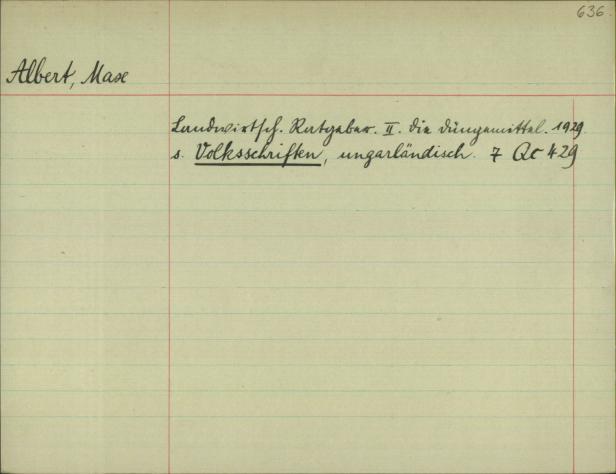 636.
Albert, Max
Landwirtsch. Ratgeber. II. Die Düngemittel. 1929
s. Volksschriften, ungarländisch. 7 Qc 429